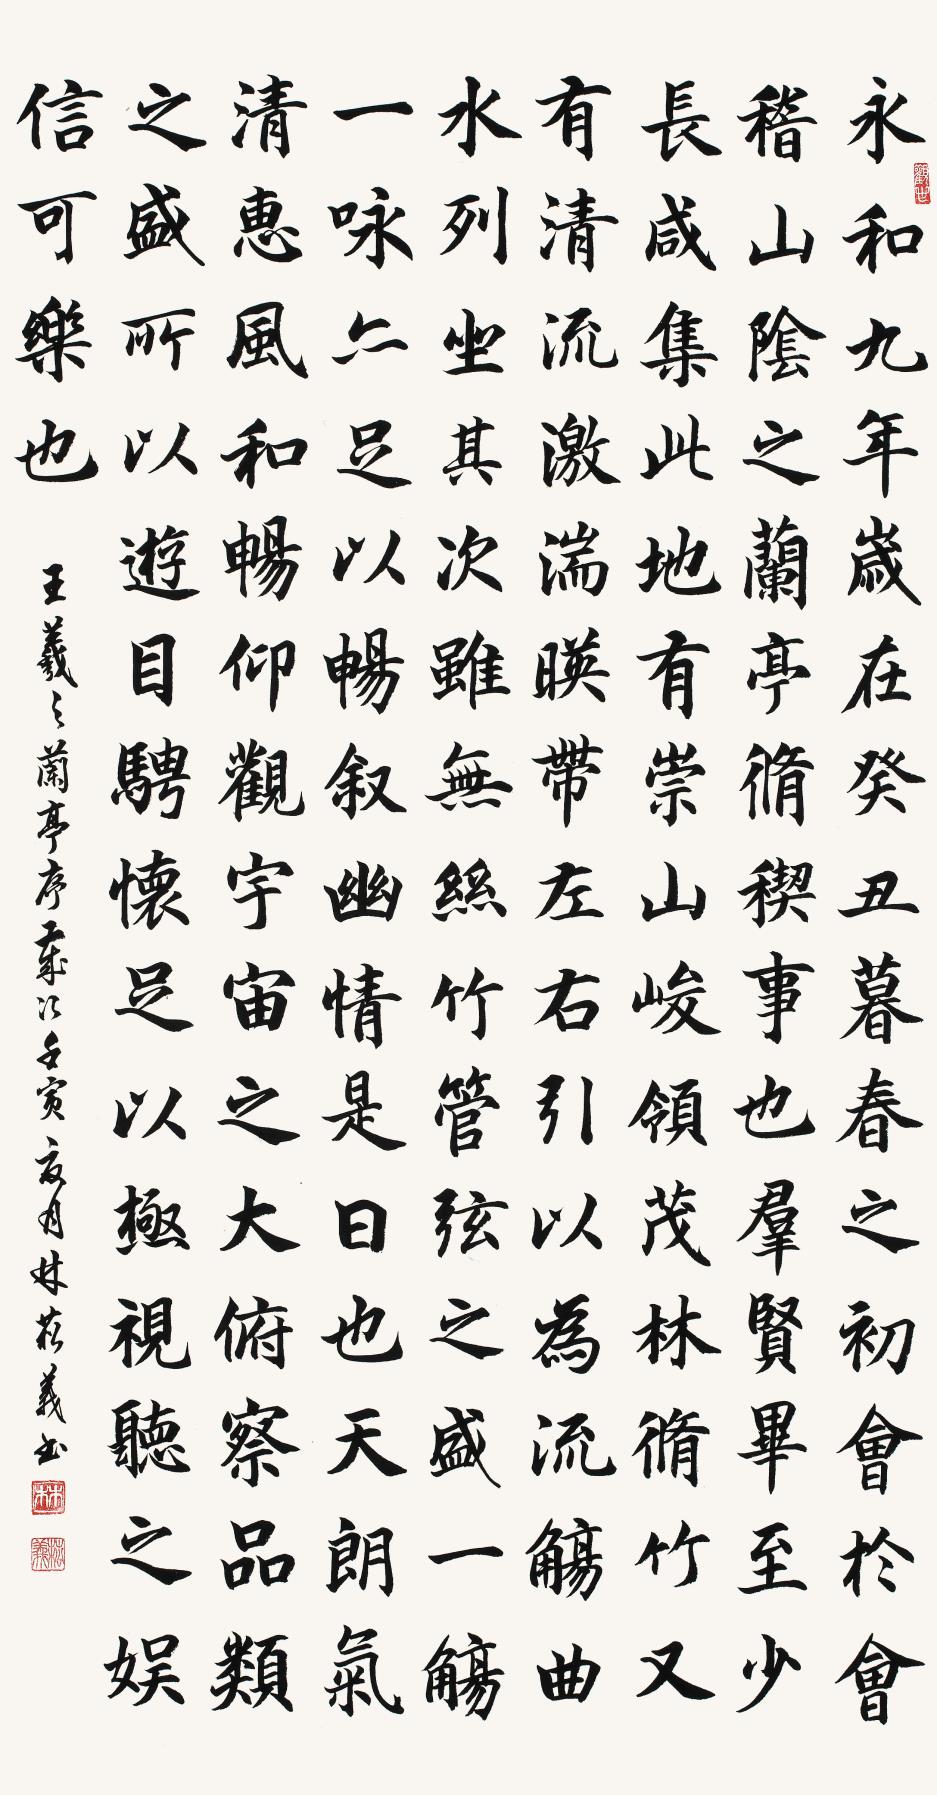 永和九年歲在癸丑暮春之初會於會
稽山陰之蘭亭脩稧事也羣賢畢至少
長咸集此地有崇山峻領茂林脩竹又
有清流激湍暎帶左右引以為流觴曲
水列坐其次雖無絲竹管弦之盛一觴
一咏亦足以暢叙幽情是日也天朗氣
清惠風和暢仰觀宇宙之大俯察品類
之盛所以遊目騁懷足以極視聽之娛
信可樂也
王羲之蘭亭序歲次壬寅夏月林菘義書
林